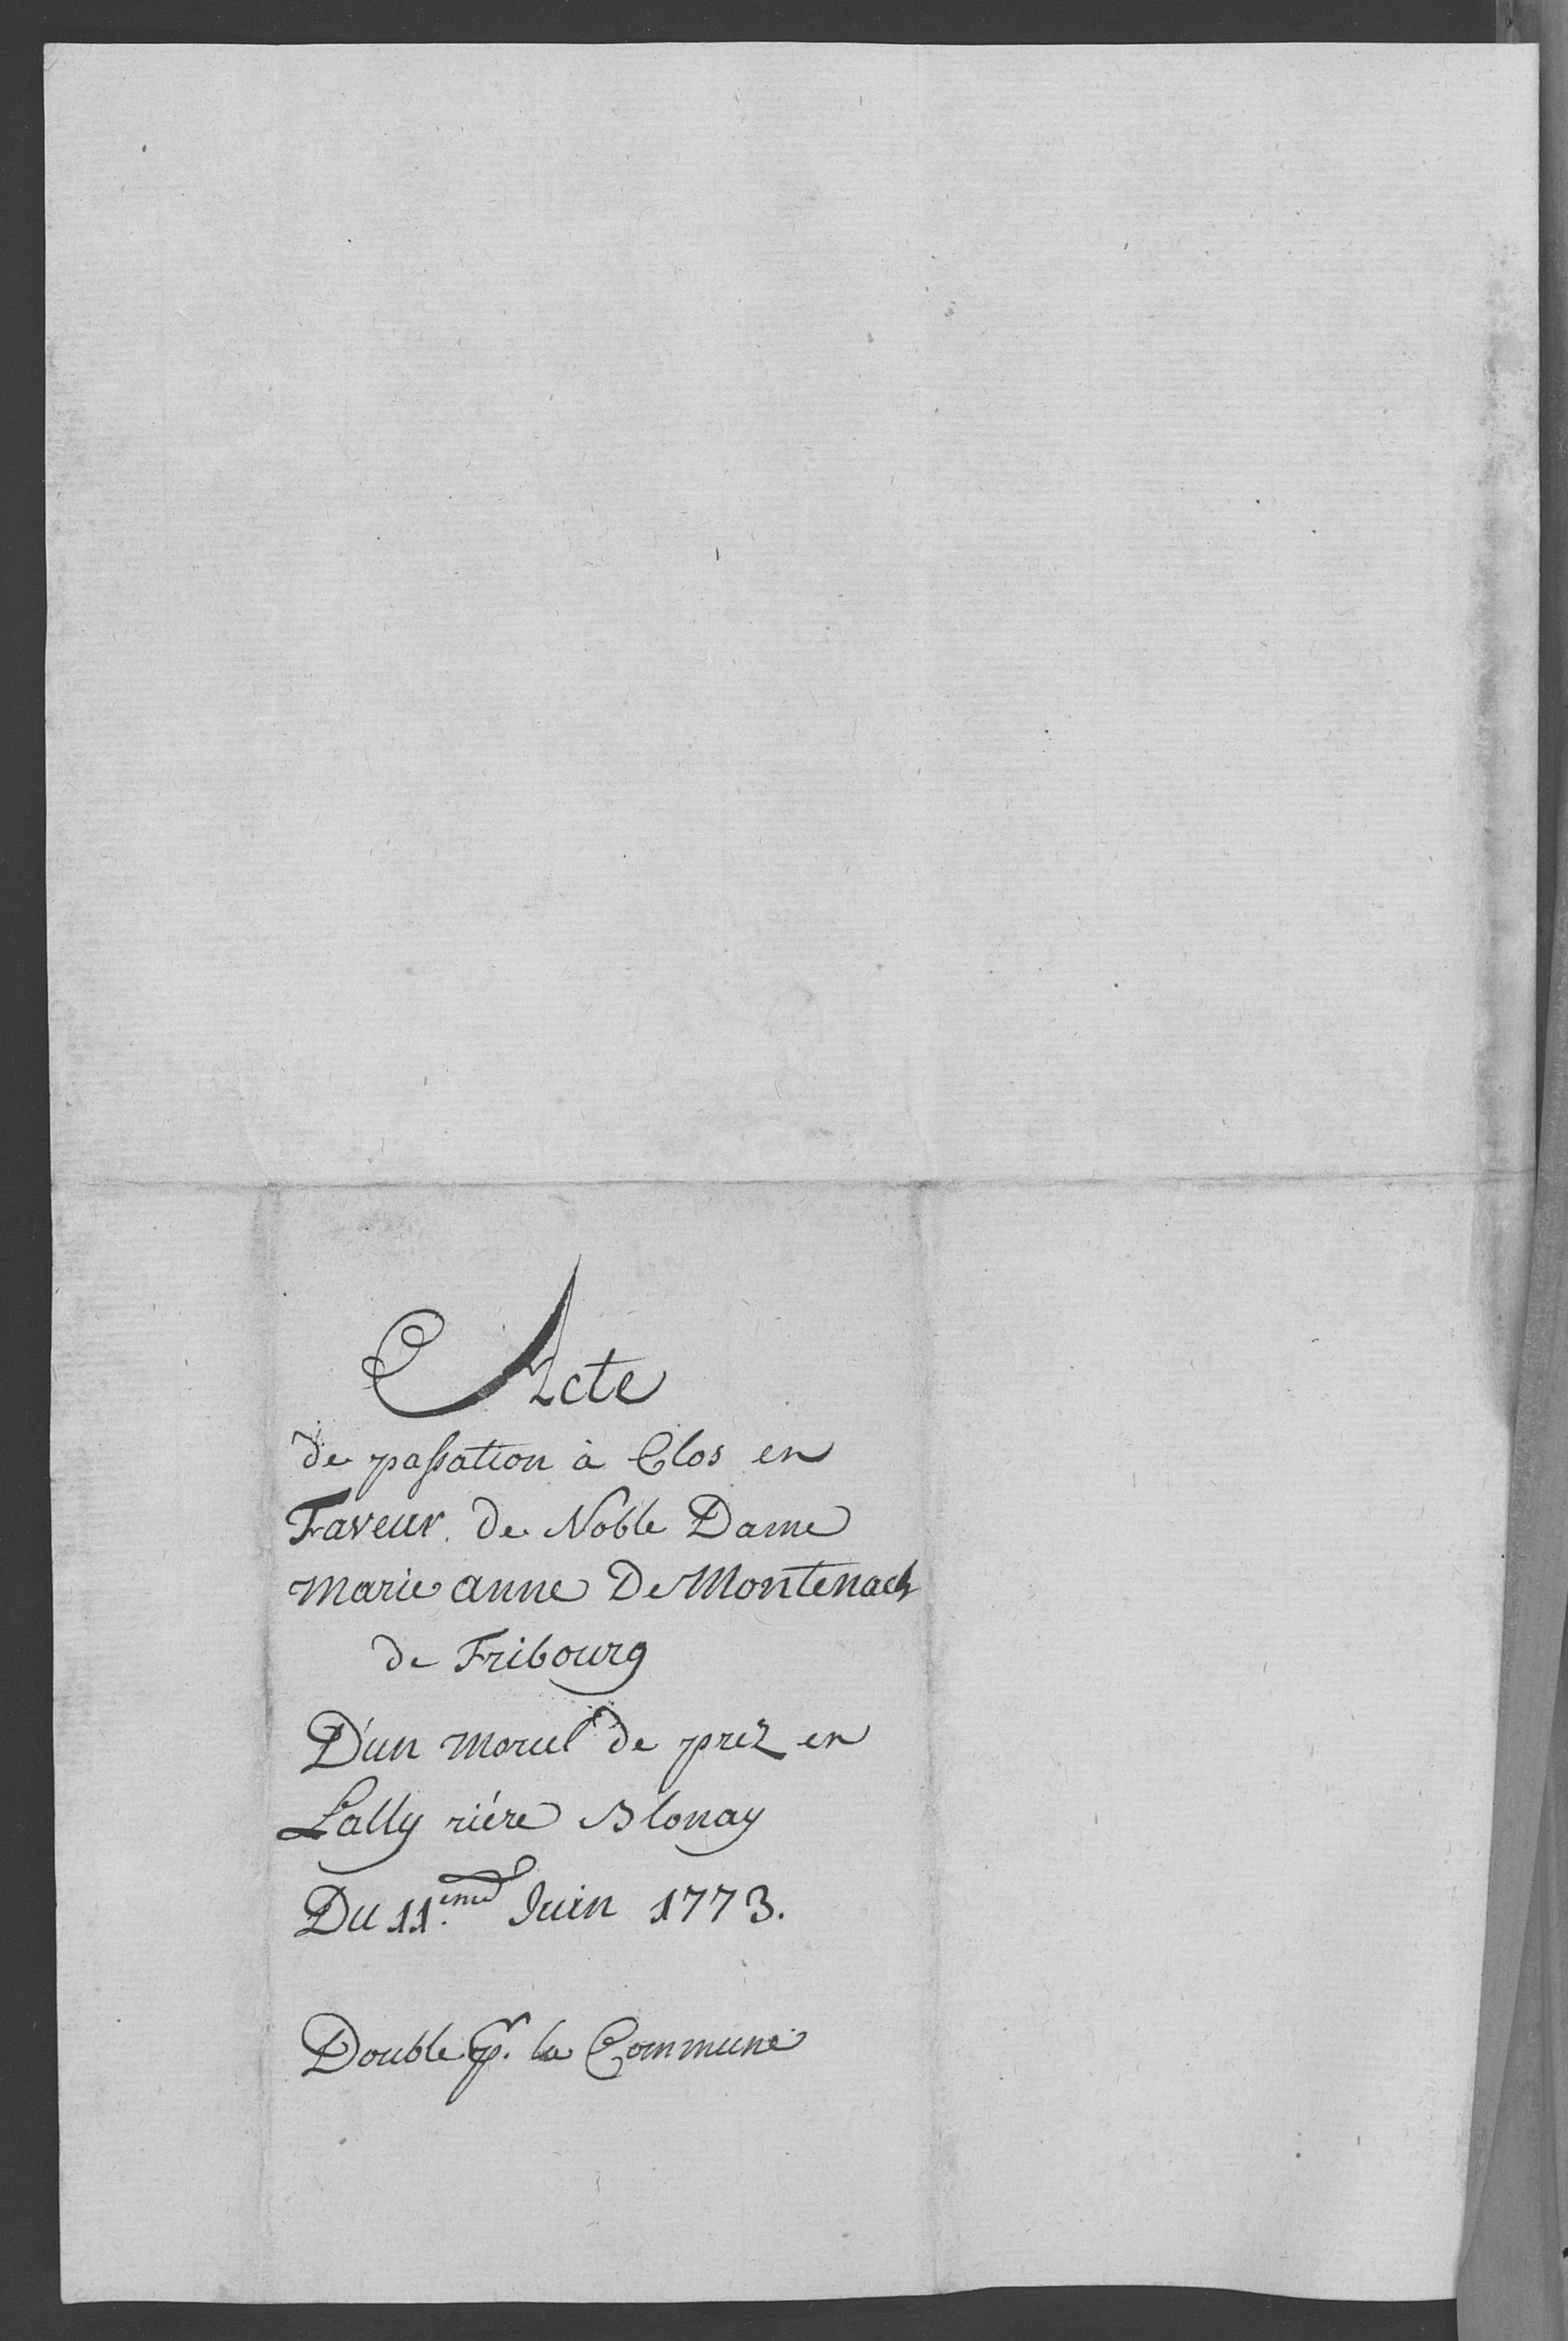 Acte
de passation à Clos en
Faveur de Noble Dame
Marie anne De Montenach
de Fribourg
D'un morcel de prez en
Lally riére Blonay
Du 11.eme Juin 1773.
Double pr. la Commune